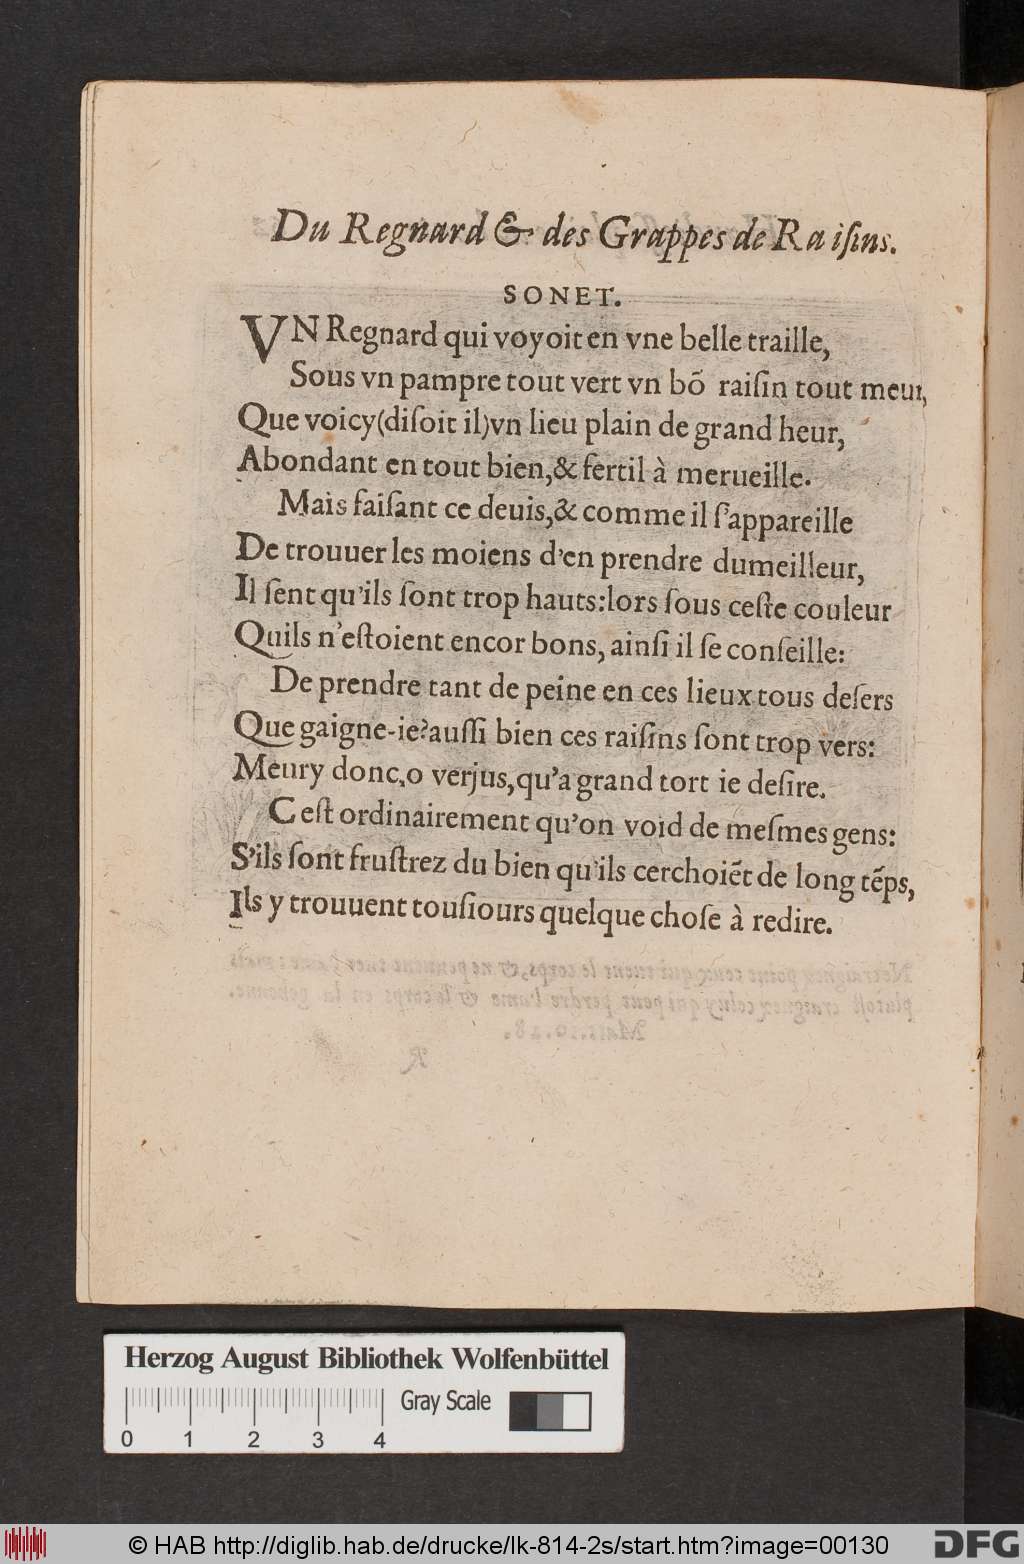 Du Regnard & des Grappes de Raiſins.
SONET.
VN Regnard qui voyoit en vne belle traille,
Sous vn pampre tout vert vn bõ raiſin tout meur,
Que voicy (diſoit il) vn lieu plain de grand heur,
Abondant en tout bien, & fertil à merueille.
Mais faiſant ce deuis, & comme il ſ'appareille
De trouuer les moiens d'en prendre du meilleur,
Il ſent qu'ils ſont trop hauts: lors ſous ceſte couleur
Quils n'eſtoient encor bons, ainſi il ſe conſeille:
De prendre tant de peine en ces lieux tous deſers
Que gaigne-ie? auſſi bien ces raiſins ſont trop vers:
Meury donc, o verjus, qu'a grand tort ie deſire.
C eſt ordinairement qu'on void de meſmes gens:
S'ils ſont fruſtrez du bien qu'ils cerchoiẽt de long tẽps,
Ils y trouuent touſiours quelque choſe à redire.
Herzog August Bibliothek Wolfenbüttel
Gray Scale
0 1 2 3 4
© HAB http://diglib.hab.de/drucke/lk-814-2s/start.htm?image=00130
DFG